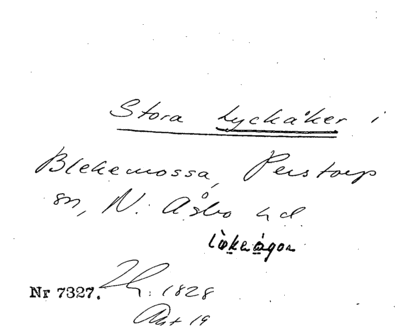 Stora Lyckåker i
Blekemossa, Perstorp
sn, N. Åsbo hd.
Nr 7327. Lh. 1828
Akt 19